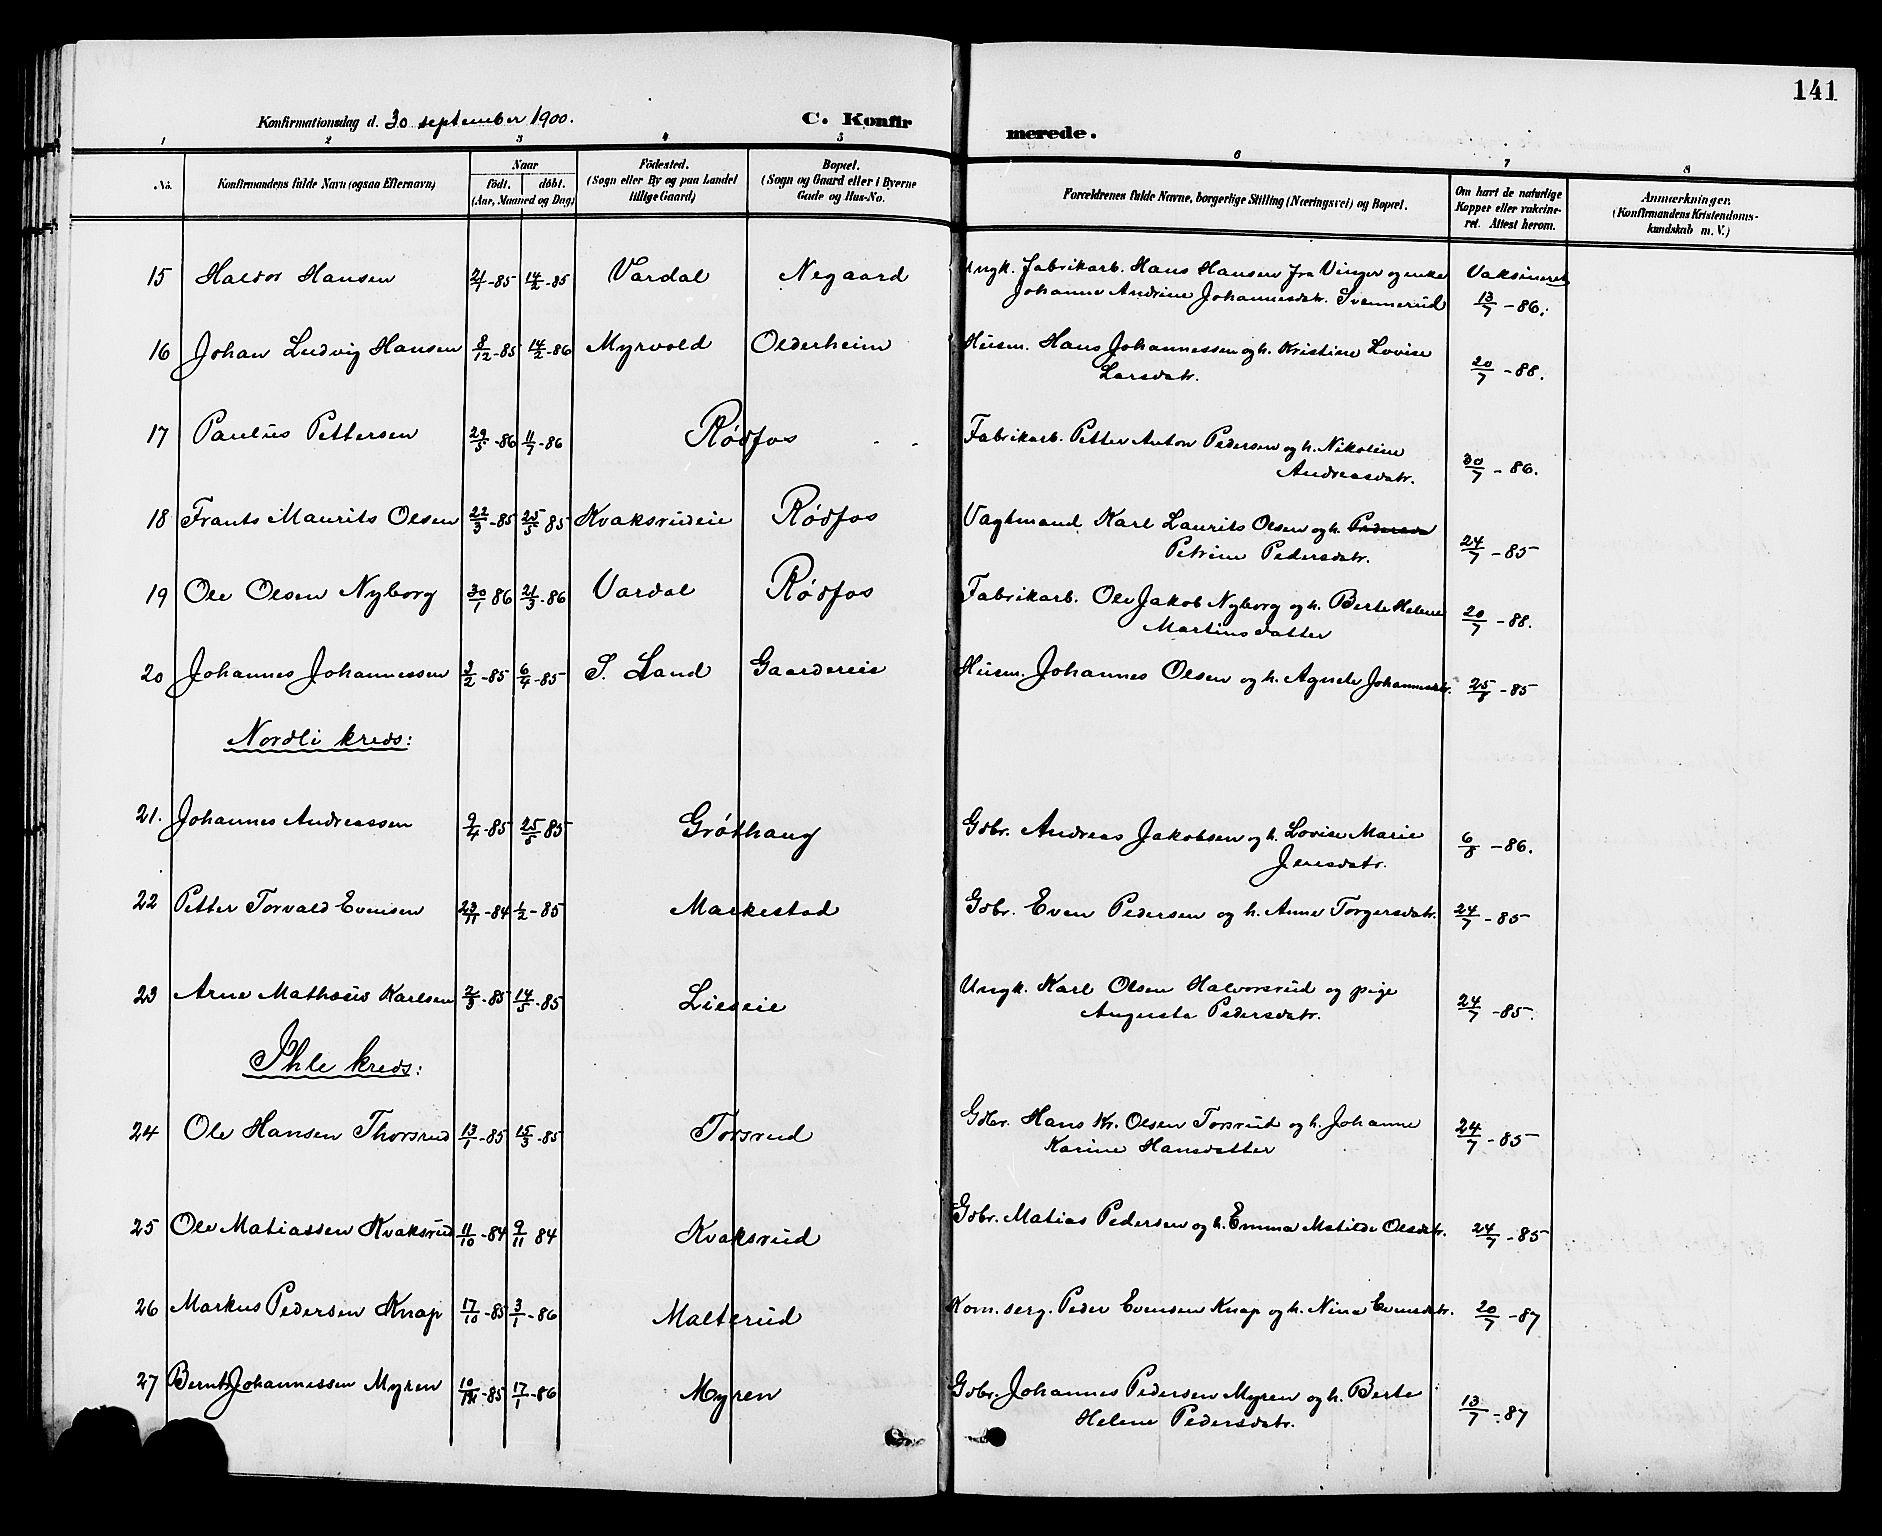 141
Konfirmationsdag d. 30 september 1900. C. Konfirmerede.
1 2 3 4 5 6 7 8
No. Konfirmandens fulde Navn (ogsaa Efternavn) Naar født. døbt. (Aar, Maaned og Dag) Fødested. (Sogn eller By og paa Landet tillige Gaard) Bopæl. (Sogn og Gaard eller i Byerne Gade og Hus-No. Forældrenes fulde Navne, borgerlige Stilling (Næringsvei) og Bopæl. Om havt de naturlige Kopper eller vakcineret. Attest herom. Anmærkninger. (Konfirmandens Kristendomskundskab m. V.)
15 Haldor Hansen 21/1-85 14/2-85 Vardal Negaard Ungk. Fabrikarb. Hans Hansen fra Vinger og enke Vaksineret
Johanne Andrine Johannesdatr. Svennerud 13/7-86.
16 Johan Ludvig Hansen 8/12-85 14/2-86 Myrvold Olderheim Husm. Hans Johannessen og h. Kristine Lovise
Larsdatr. 20/7-88.
17 Paulus Pettersen 29/5-86 11/7-86 Rødfos Fabrikarb. Petter Anton Pedersen og h. Nikoline
Andreasdatr. 30/7-86.
18 Frants Maurits Olsen 22/3-85 25/5 85 Kvaksrudeie Rødfos Vagtmand Karl Laurits Olsen og h.
Petrine Pedersdatr. 24/7-85
19 Ole Olsen Nyborg 30/1 86 21/3-86 Vardal Rødfos Fabrikarb. Ole Jakob Nyborg og h. Berte Helene
Martinsdatter 20/7-88.
20 Johannes Johannessen 3/2-85 6/4-85 S. Land Gaardereie Husm. Johannes Olsen og h. Agnete Johannesdr. 25/8-85
Nordli kreds:
21. Johannes Andreassen 9/4-85 25/5 85 Grøthaug Gbr. Andreas Jakobsen og h. Lovise Marie
Jensdatr. 6/8-86.
22 Petter Torvald Evensen 23/11-84 1/2-85 Markestad Gbr. Even Pedersen og h. Anne Torgersdatr. 24/7-85
23 Arne Mathæus Karlsen 2/3-85 14/5-85 Lieseie Ungk. Karl Olsen Halvorsrud og pige
Augusta Pedersdatr. 24/7-85.
Ihle kreds:
24 Ole Hansen Thorsrud 13/1-85 15/3-85 Torsrud Gbr. Hans Kr. Olsen Torsrud og h. Johanne
Karine Hansdatter 24/7-85
25 Ole Matiassen Kvaksrud 11/10-84 9/11 84 Kvaksrud Gbr. Matias Pedersen og h. Emma Matilde Olsdatr. 24/7-85
26 Markus Pedersen Knap 17/10-85 3/1-86 Malterud Kom. serg. Peder Evensen Knap og h. Nina Evensdatr. 20/7-87
27 Bernt Johannessen Myren 10/12-85 17/1-86 Myren Gbr. Johannes Pedersen Myren og h. Berte
Helene Pedersdatr. 13/7-87